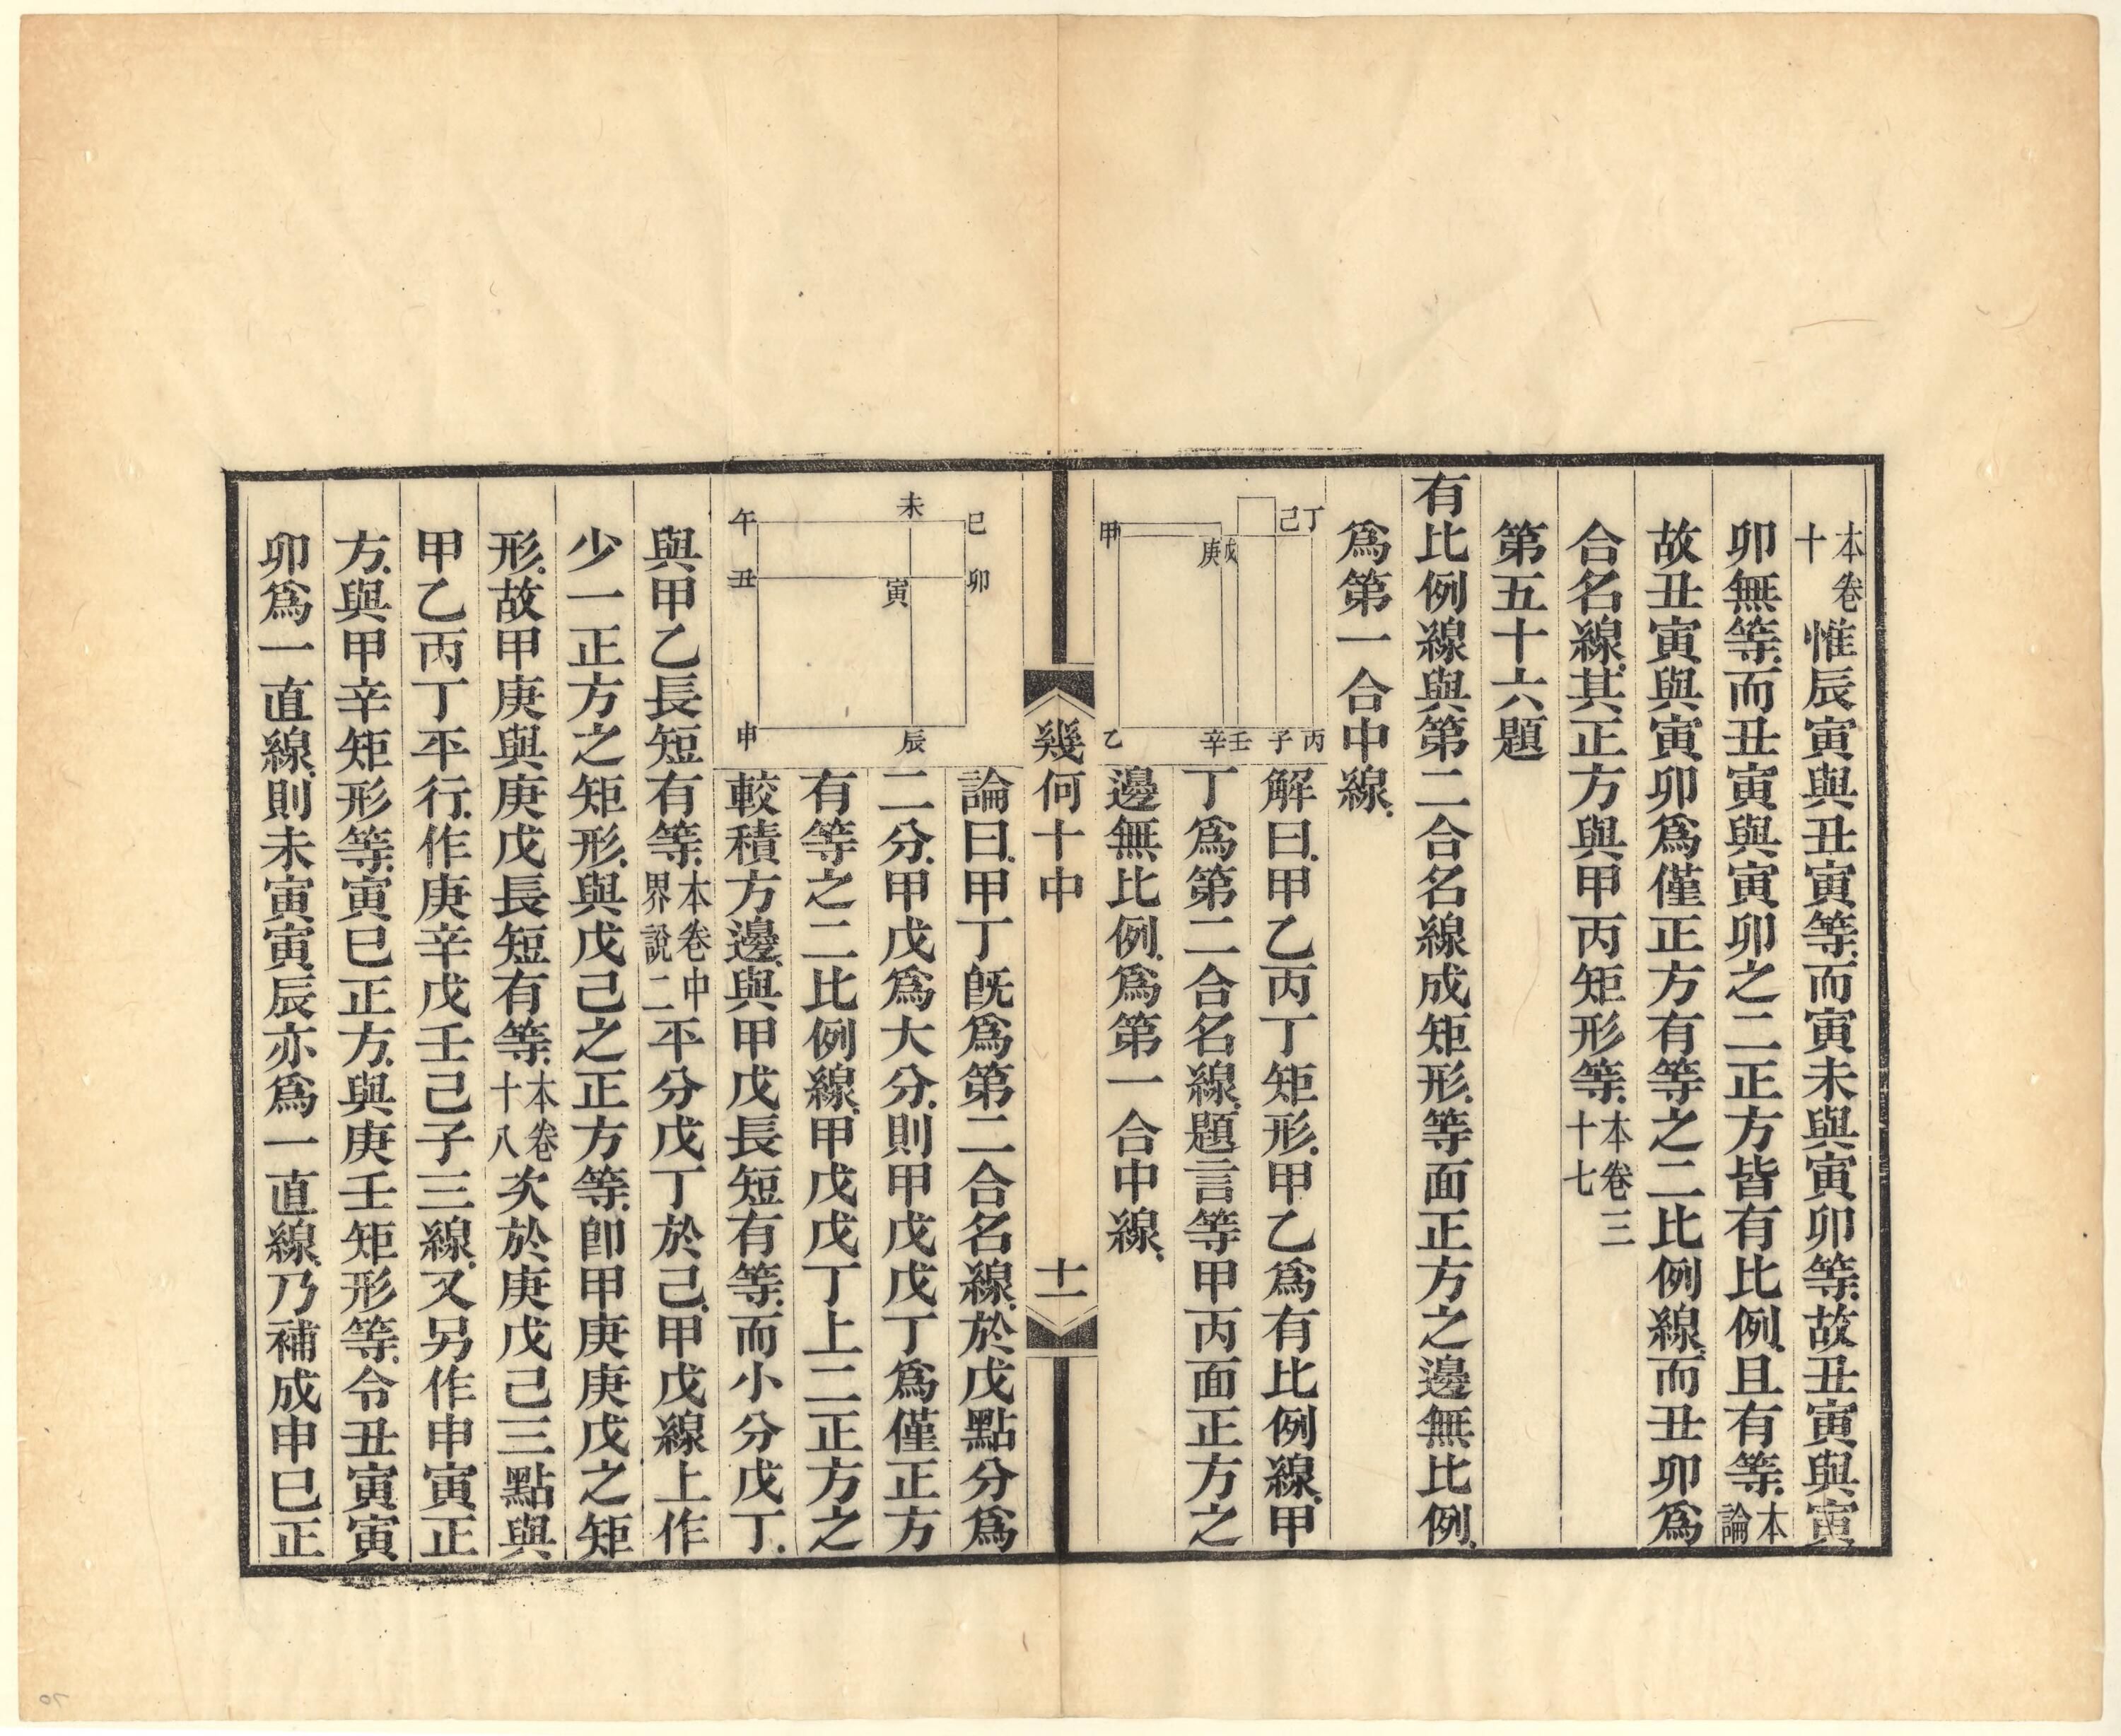 本卷十惟辰寅與丑寅等.而寅未與寅卯等.故丑寅與寅
卯無等.而丑寅與寅卯之二正方皆有比例.且有等.本論
故丑寅與寅卯爲僅正方有等之二比例線.而丑卯爲
合名線.其正方與甲丙矩形等.本卷三十七
第五十六題
有比例線與第二合名線成矩形.等面正方之邊無比例.
爲第一合中線.
丁
己
戊
庚
甲
丙
子
壬
辛
乙
解曰.甲乙丙丁矩形.甲乙爲有比例線.甲
丁爲第二合名線.題言等甲丙面正方之
邊無比例.爲第一合中線.
幾何十中
十一
巳
未
午
卯
寅
丑
辰
申
論曰.甲丁旣爲第二合名線.於戊點分爲
二分.甲戊爲大分.則甲戊戊丁爲僅正方
有等之二比例線.甲戊戊丁上二正方之
較積方邊.與甲戊長短有等.而小分戊丁.
與甲乙長短有等.本卷中界說二平分戊丁於己.甲戊線上作
少一正方之矩形.與戊己之正方等.卽甲庚庚戊之矩
形.故甲庚與庚戊長短有等.本卷十八次於庚戊己三點與
甲乙丙丁平行.作庚辛戊壬己子三線.又另作申寅正
方.與甲辛矩形等.寅巳正方.與庚壬矩形等.令丑寅寅
卯爲一直線.則未寅寅辰亦爲一直線.乃補成申巳正